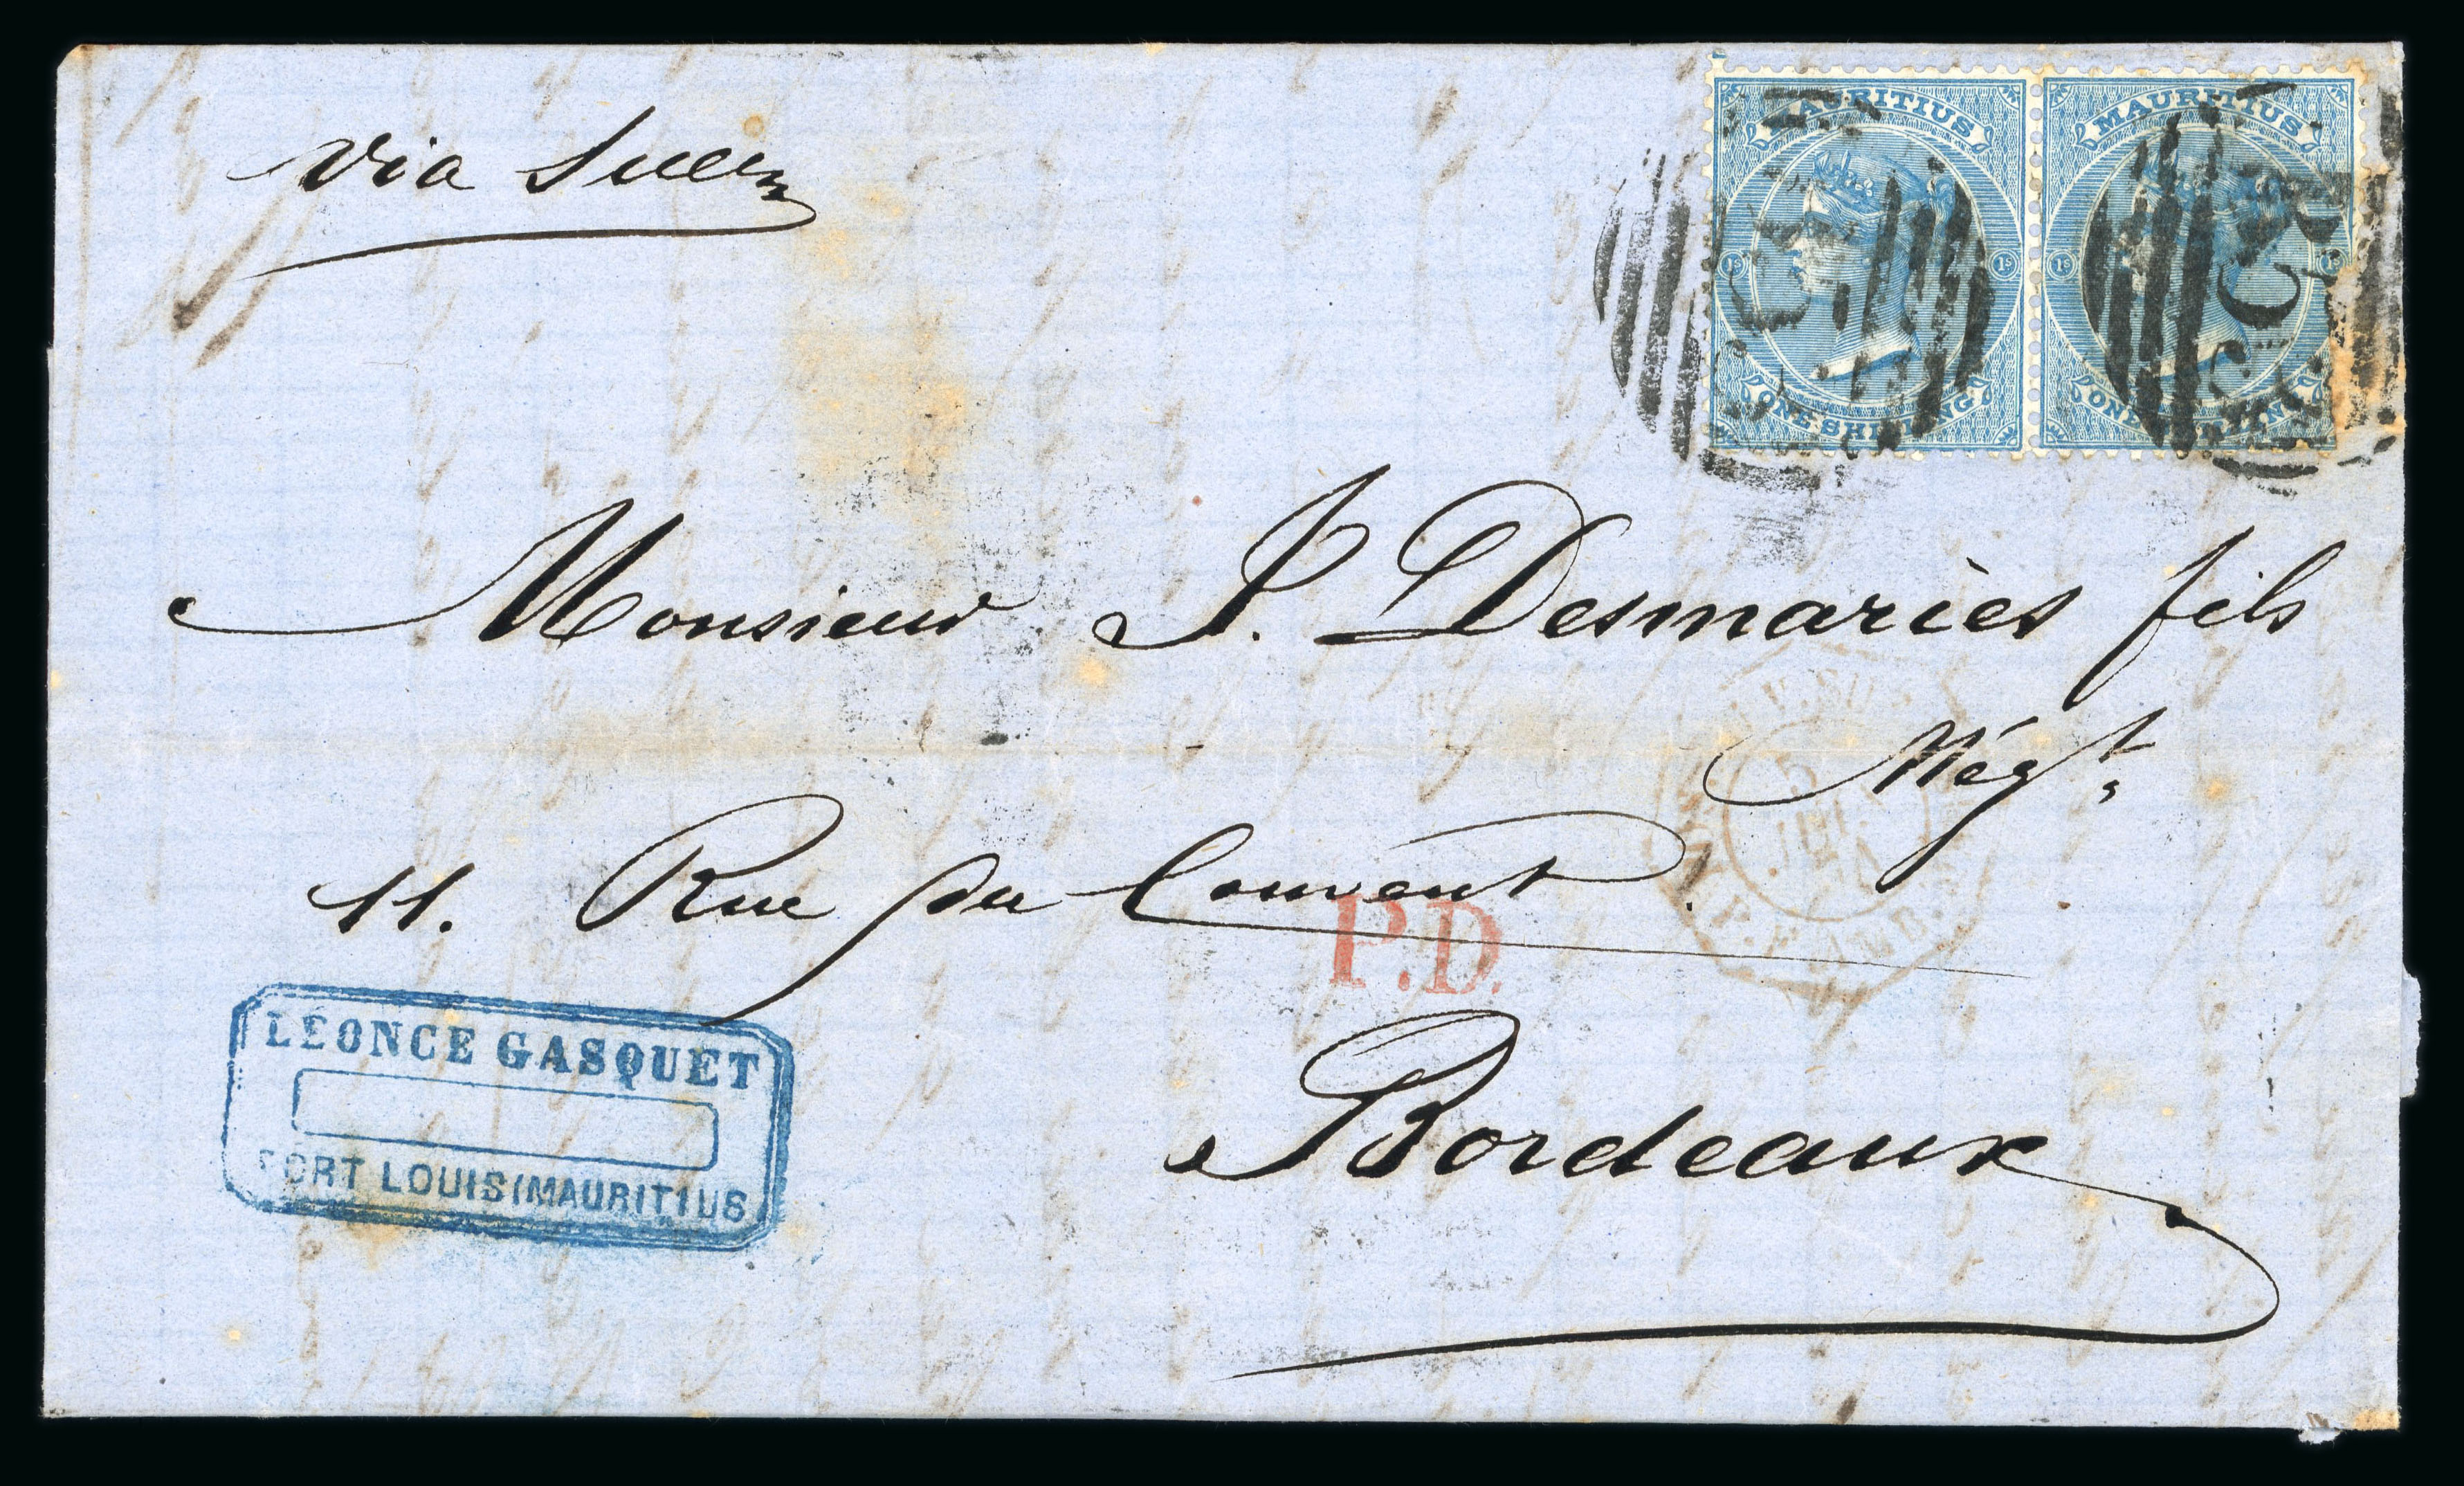 via Suez
MAURITIUS
1s 1s
ONE SHILLING
MAURITIUS
1s 1s
ONE SHILLING
Monsieur J. Desmariès fils
Négt.
11. Rue du Couvent.
P.D.
Bordeaux
LÉONCE GASQUET
PORT LOUIS (MAURITIUS